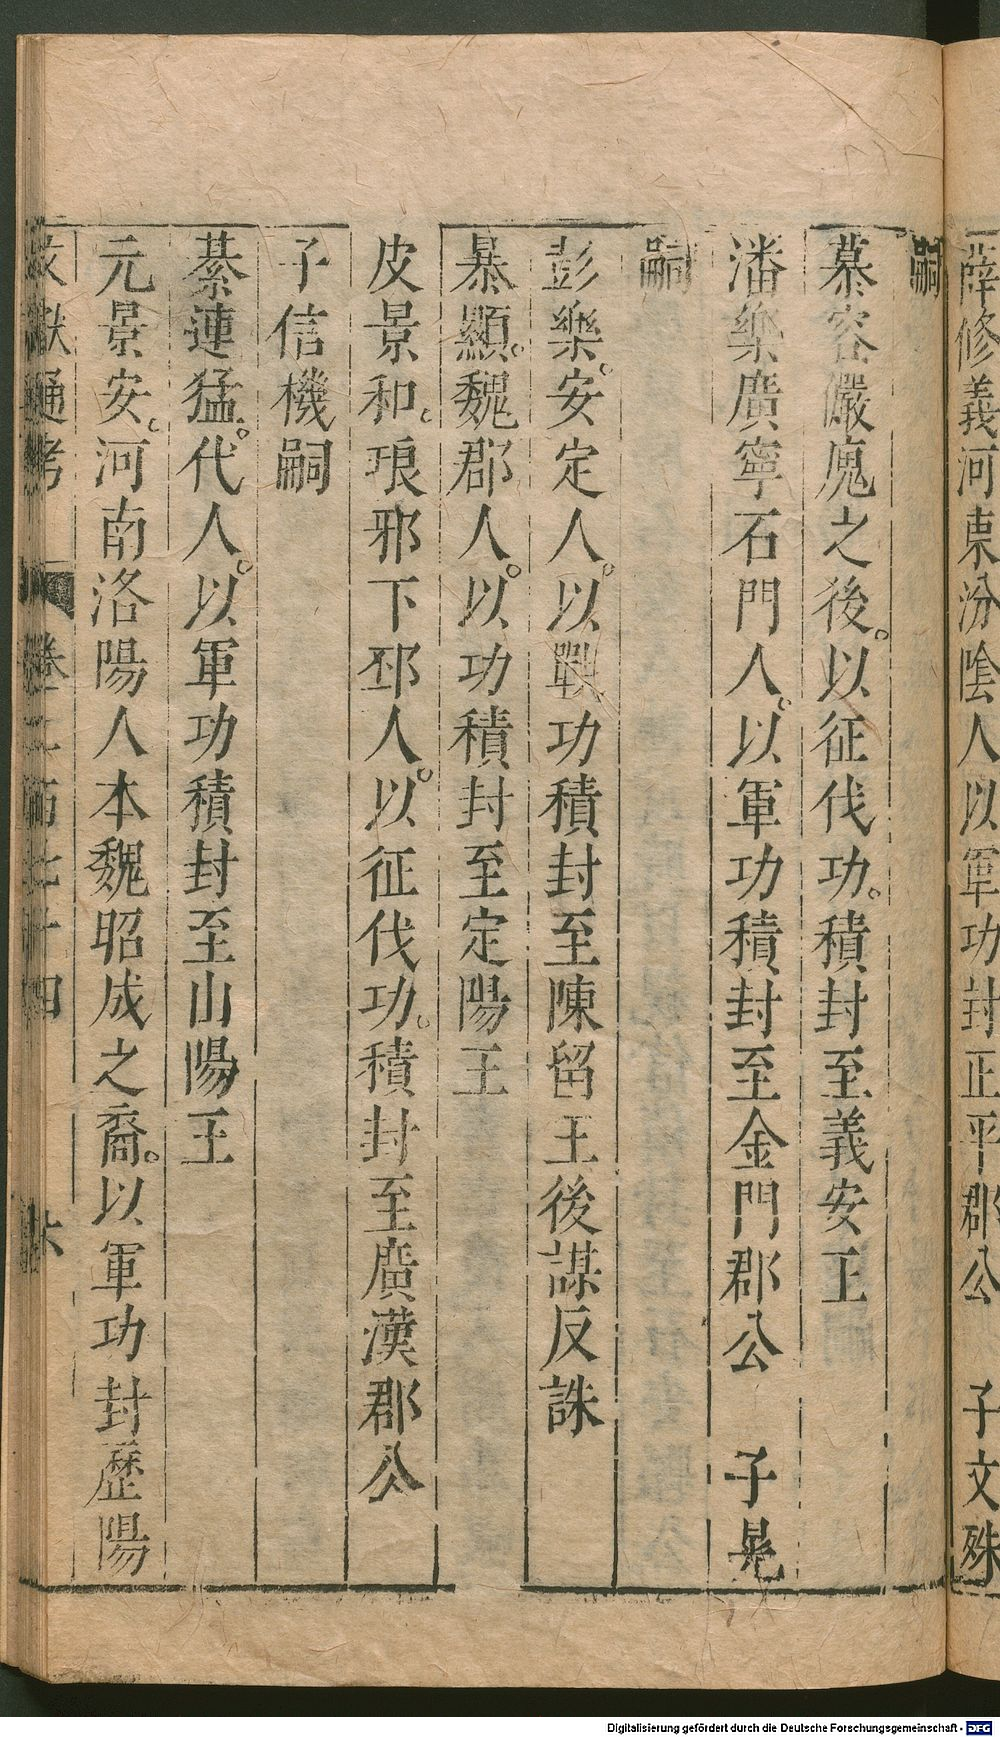 薛修義河東汾陰人以軍功封正平郡公　子文殊
嗣
慕容儼廆之後。以征伐功。積封至義安王
潘樂廣寧石門人。以軍功積封至金門郡公　子晃
嗣
彭樂。安定人。以戰功積封至陳留王後謀反誅
暴顯。魏郡人。以功積封至定陽王
皮景和。琅邪下邳人。以征伐功。積封至廣漢郡公
子信機嗣
綦連猛。代人。以軍功積封至山陽王
元景安。河南洛陽人本魏昭成之裔。以軍功封歷陽
文獻通考　卷二百七十四　六
Digitalisierung gefördert durch die Deutsche Forschungsgemeinschaft - DFG